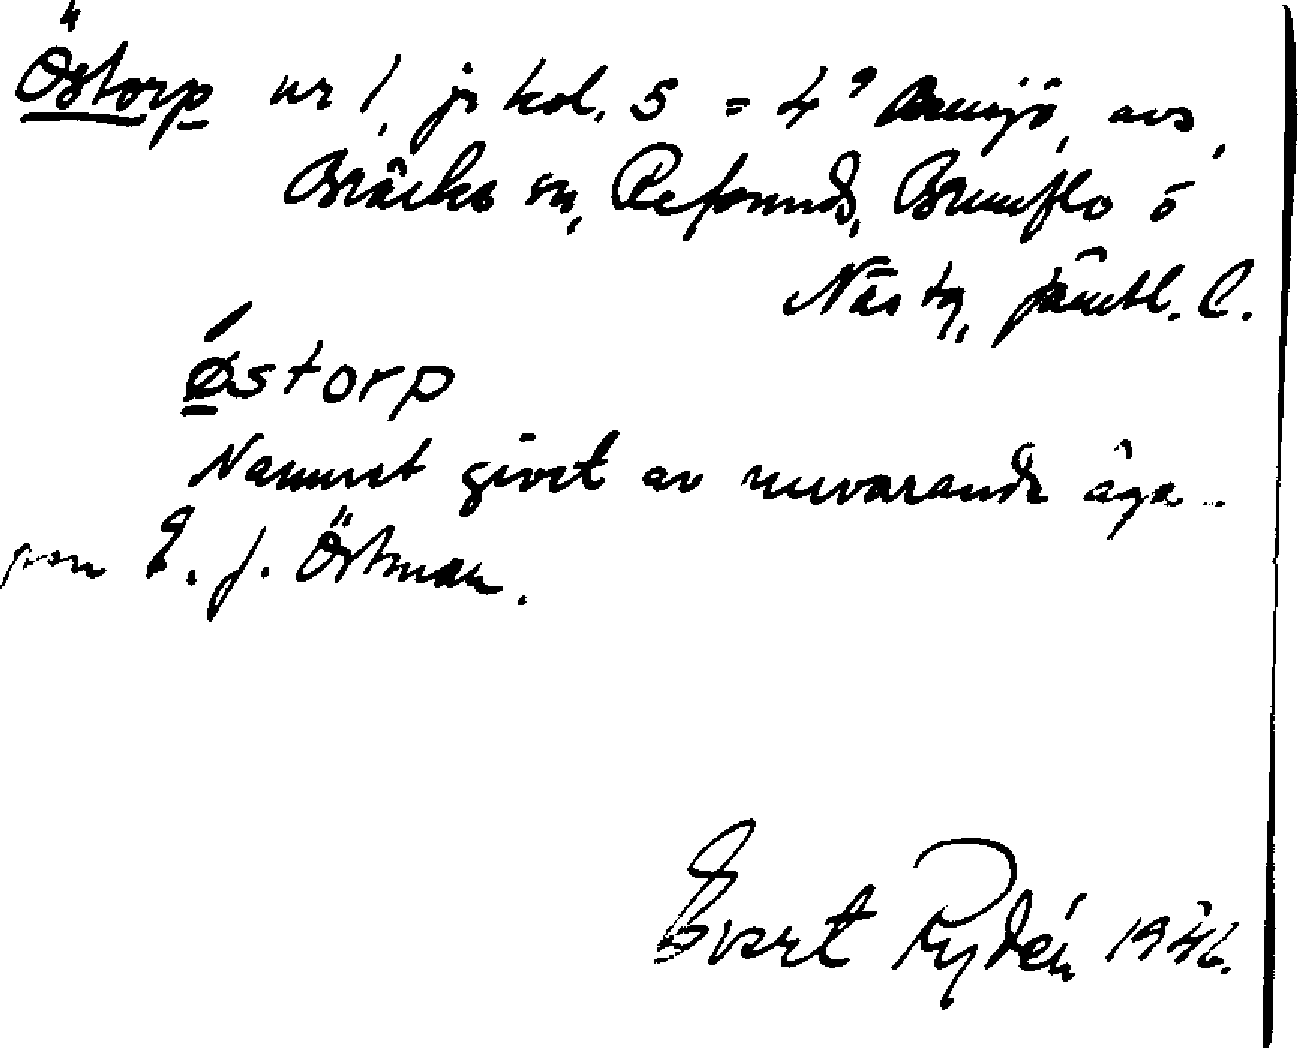 Östorp nr 1, jr kol. 5 = 4⁹ Bensjö, avs,
Bräcke sn, Refsunds, Brunflo o
Näs tg, Jämtl. l.
østorp
Namnet givet av nuvarande äga-
ren E. J. Östman.
Evert Rydén 1946.